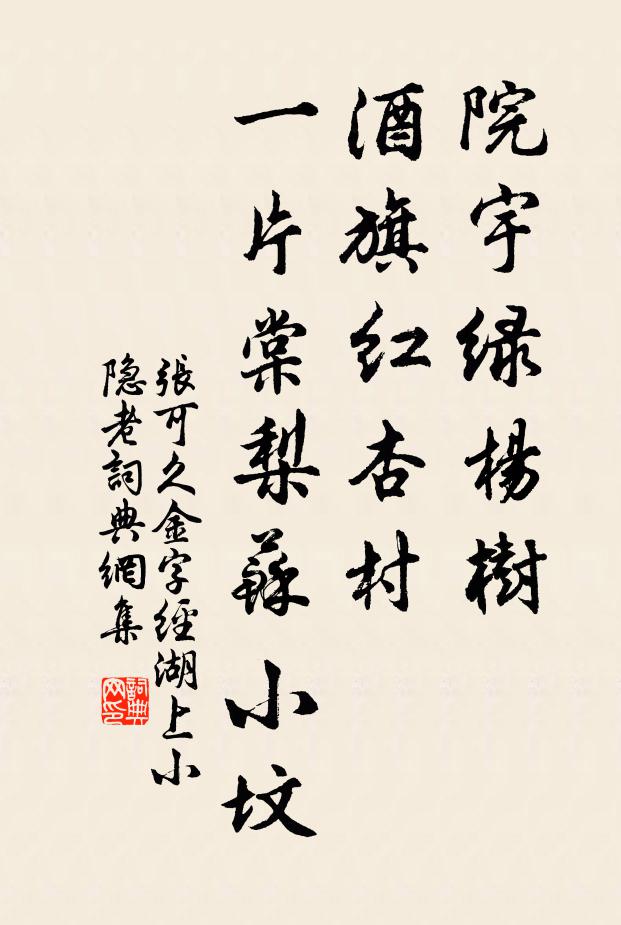 院宇绿楊樹
酒旗红杏村
一片棠梨蘇小坟
張可久金字經湖上小
隐老詞典網集
詞典网印